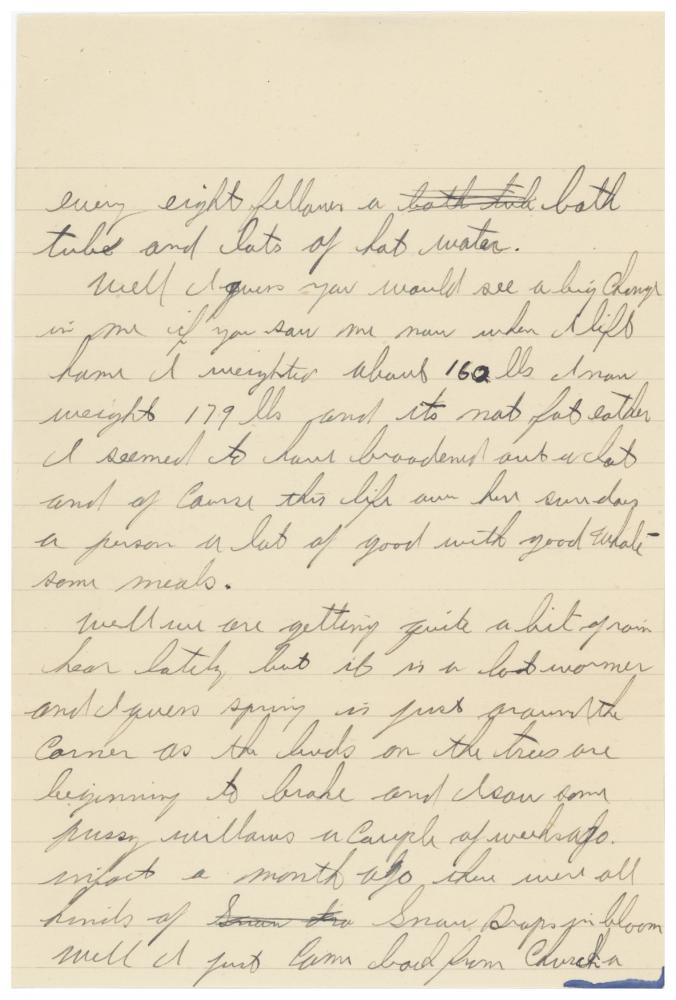 every eight fellows a bath tub bath
tube and lots of hot water.
Well I guess you would see a big Change
in me if you saw me now when I lift
home I weighted about 160 lbs I now
weight 179 lbs and its not fat eather
I seemed to have broadened out a lot
and of Course this life over here sure does
a person a lot of good with good whole-
some meals.
Well we are getting quite a bit of rain
hear lately but it is a lot warmer
and I guess spring is just around the
Corner as the buds on the trees are
beginning to brake and I saw some
pussy willows a Couple of weeks ago.
infact a month ago there were all
kinds of Snow Drops in bloom
Well I just Came back from Church a